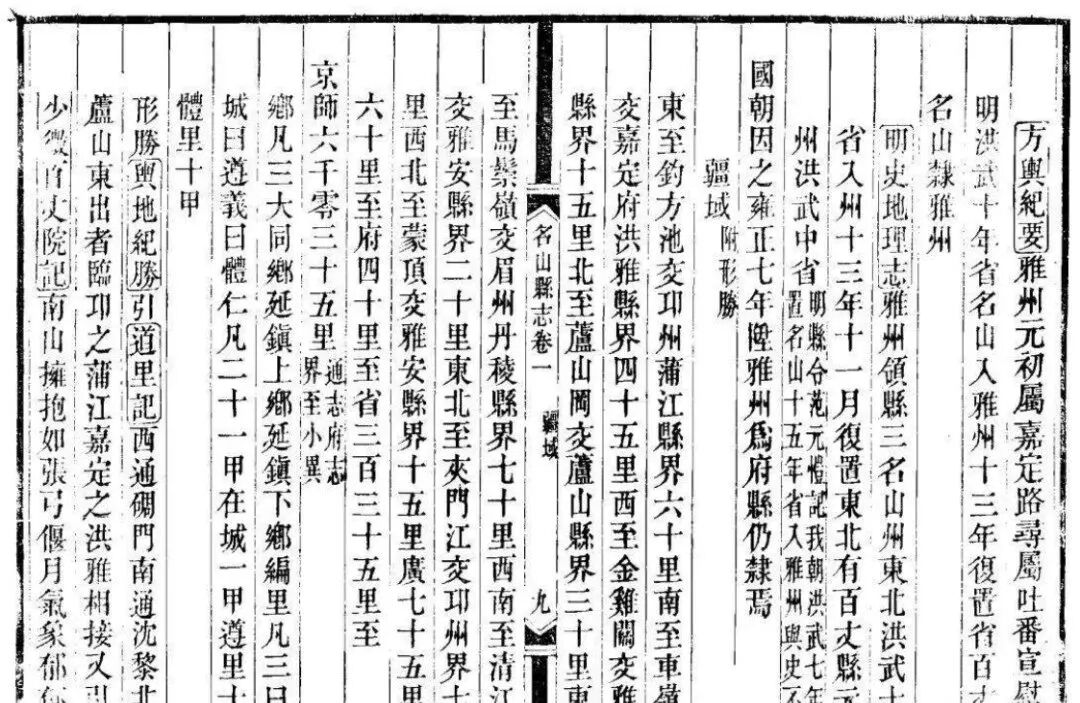 方輿紀要雅州元初屬嘉定路尋屬吐番宣慰
明洪武十年省名山入雅州十三年復置省百丈
名山隸雅州
明史地理志雅州領縣三名山州東北洪武十
省入州十三年十一月復置東北有百丈縣元
州洪武中省明縣令范元禮記我朝洪武七年
置名山十五年省入雅州與史不
國朝因之雍正七年陞雅州爲府縣仍隸焉
疆域附形勝
東至釣方池交邛州蒲江縣界六十里南至車嶺
交嘉定府洪雅縣界四十五里西至金雞關交雅
縣界十五里北至蘆山岡交蘆山縣界三十里東
名山縣志卷一 疆域 九
至馬鬃嶺交眉州丹稜縣界七十里西南至清江
交雅安縣界二十里東北至夾門江交邛州界七
里西北至蒙頂交雅安縣界十五里廣七十五里
六十里至府四十里至省三百三十五里至
京師六千零三十五里通志府志
界至小異
鄉凡三大同鄉延鎮上鄉延鎮下鄉編里凡三曰
城曰遵義曰體仁凡二十一甲在城一甲遵里十
體里十甲
形勝輿地紀勝引道里記西通碉門南通沈黎北
蘆山東出者臨邛之蒲江嘉定之洪雅相接又引
少微百丈院記南山擁抱如張弓偃月氣象郁